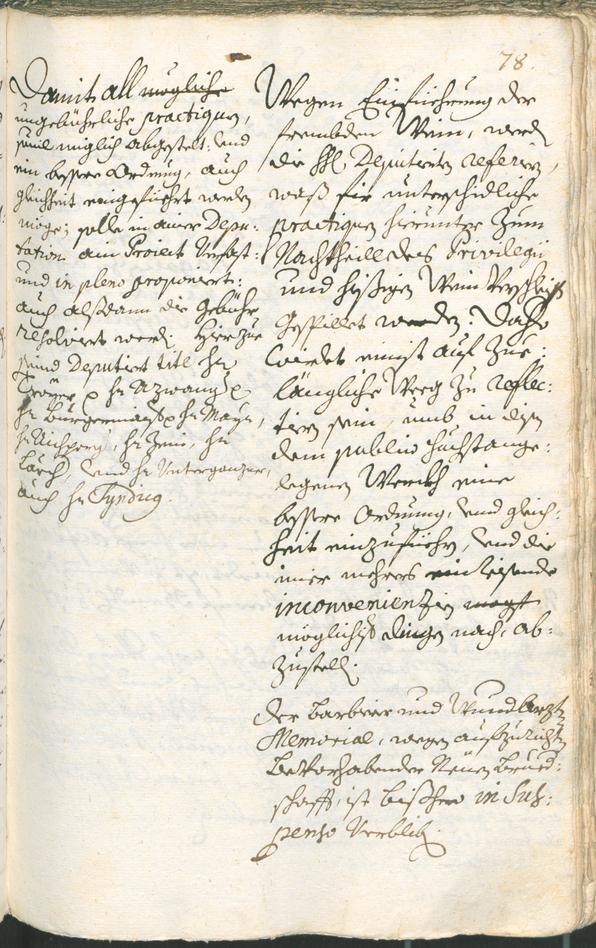 78.
Damit all mögliche
ungebührliche practiquen,
sovil möglich abgestelt: und
ein bessere Ordnung, auch
gleichheit eingeführt werden
möge; solle in ainer Depu:
tation ain Proiect verfast:
und in pleno proponirt:
auch alßdann die Gebühr
resolviert werden. Hierzue
seind Deputiert titl hr
hr Burgermaister hr Mayr,
hr Zeni, hr
und hr Untergänzner,
auch hr Syndicus.
Wegen Einfüehrung der
frembden Wein, werden
die hhl. Deputirten referirn,
waß für unterschidliche
practiquen hierunter zum
Nachtheill des Privilegii
und hießigen Wein Verschleiß
Gespillet werden: Daher
werdet einist auf zue:
längliche Weeg zu reflec:
tiern sein, umb in disen
dem publico hechstange:
legenen Werckh eine
bessere Ordnung, und gleich:
heit einzuführen, und die
imer mehrers einreisende
inconvenienzien
möglichist dingen nach, ab:
zustellen.
Der Barbierer und Wundtarzten
Memorial, wegen aufzurichten
Bevorhabender Neuen Brued:
schafft, ist bißhero in Sus:
penso Verbliben.